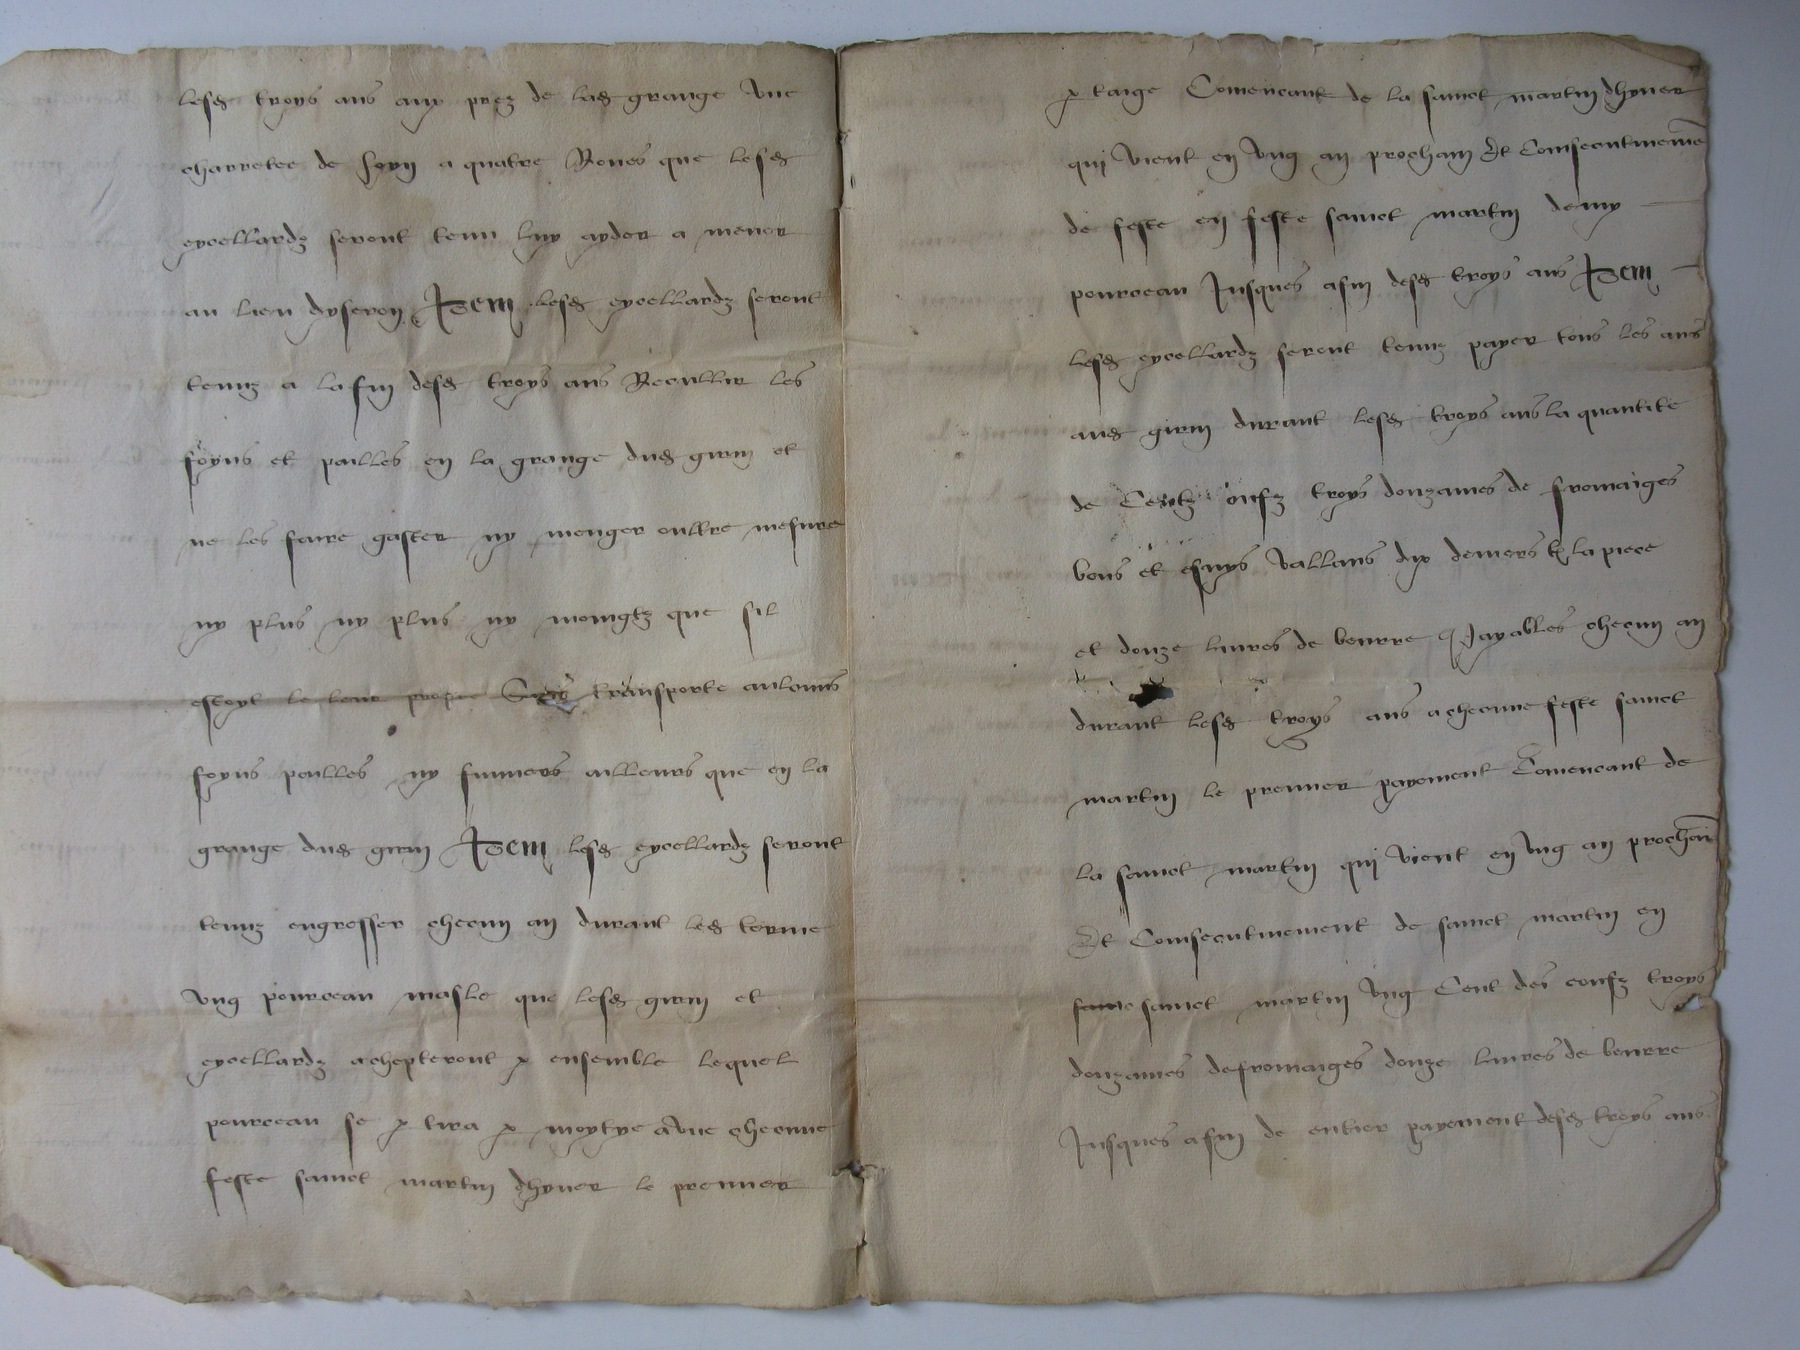 lesd troys ans aux prez de lad grange une
charretee de foyn a quatre Roues que lesd
eycellardz seront tenu luy ayder a mener
au lieu dyseron Item lesd eycellardz seront
tenuz a la fin desd troys ans Recullir les
foyns et pailles en la grange dud girin et
ne les faire gaster ny menger oultre mesure
ny plus ny plus ny moingtz que sil
estoyt le leur propre Sens transporte aulcuns
foyns pailles ny fumiers ailleurs que en la
grange dud girin Item lesd eycellardz seront
tenuz engresser checun an durant led terme
ung pourceau masle que lesd girin et
eycellardz achepteront p ensemble lequel
pourceau se p tira p moytye a une checune
feste sainct martin dhyver le premier
p taige Comencant de la sainct martin dhyver
qui vient en ung an prochain Et Consecutivement
de feste en feste sainct martin demy
pourceau Jusques a fin desd troys ans Item
lesd eycellardz seront tenuz payer tous les ans
aud girin durant lesd troys ans la quantite
de Centz oufz troys douzaines de fromaiges
bons et essuys vallans dix deniers tz la piece
et douze livres de beurre Payables checun an
durant lesd troys ans a checune feste sainct
martin le premier payement Comencant de
la sainct martin qui vient en ung an prochain
Et Consecutivement de sainct martin en
sainct martin ung Cent des oeufz troys
douzaines de fromaiges douze livres de beurre
Jusques a fin de entier payement desd troys ans